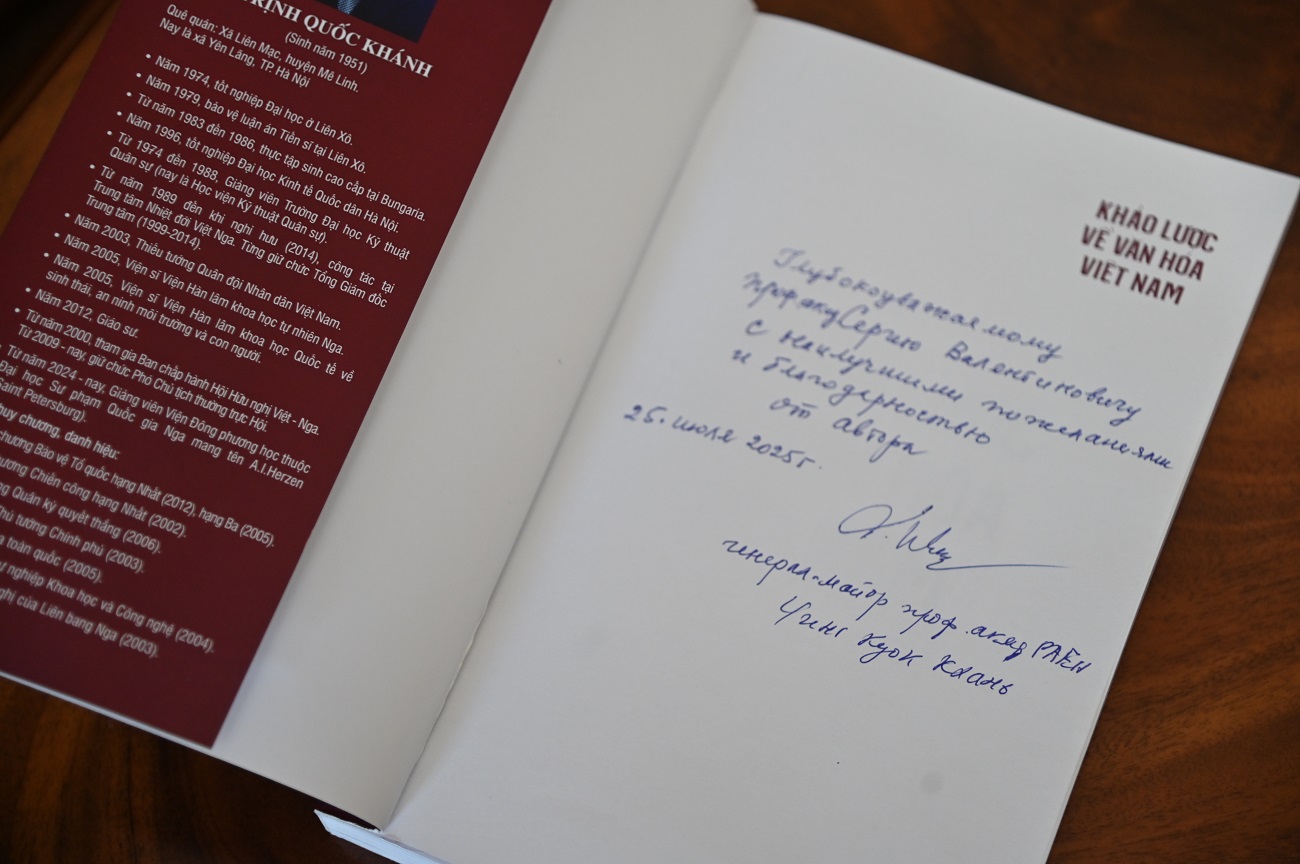 TRỊNH QUỐC KHÁNH
(Sinh năm 1951)
Quê quán: Xã Liên Mạc, huyện Mê Linh.
Nay là xã Yên Lãng, TP. Hà Nội
• Năm 1974, tốt nghiệp Đại học ở Liên Xô.
• Năm 1979, bảo vệ luận án Tiến sĩ tại Liên Xô.
• Từ năm 1983 đến 1986, thực tập sinh cao cấp tại Bungaria.
• Năm 1996, tốt nghiệp Đại học Kinh tế Quốc dân Hà Nội.
• Từ 1974 đến 1988, Giảng viên Trường Đại học Kỹ thuật
Quân sự (nay là Học viện Kỹ thuật Quân sự).
• Từ năm 1989 đến khi nghỉ hưu (2014), công tác tại
Trung tâm Nhiệt đới Việt Nga. Từng giữ chức Tổng Giám đốc
Trung tâm (1999-2014).
• Năm 2003, Thiếu tướng Quân đội Nhân dân Việt Nam.
• Năm 2005, Viện sĩ Viện Hàn lâm khoa học tự nhiên Nga.
• Năm 2005, Viện sĩ Viện Hàn lâm khoa học Quốc tế về
sinh thái, an ninh môi trường và con người.
• Năm 2012, Giáo sư.
• Từ năm 2000, tham gia Ban chấp hành Hội Hữu nghị Việt - Nga.
Từ 2009 - nay, giữ chức Phó Chủ tịch thường trực Hội.
• Từ năm 2024 - nay, Giảng viên Viện Đông phương học thuộc
Đại học Sư phạm Quốc gia Nga mang tên A.I.Herzen
Saint Petersburg).
huy chương, danh hiệu:
chương Bảo vệ Tổ quốc hạng Nhất (2012), hạng Ba (2005).
chương Chiến công hạng Nhất (2002).
Quân kỳ quyết thắng (2006).
Thủ tướng Chính phủ (2003).
toàn quốc (2005).
nghiệp Khoa học và Công nghệ (2004).
nghị của Liên bang Nga (2003).
KHẢO LƯỢC
VỀ VĂN HÓA
VIỆT NAM
Глубокоуважаемому
проф акад Сергию Валентиновичу
с наилучшими пожеланиями
и благодарностью
от автора
25. июля 2025г.
генерал-майор проф. акад РАЕН
Чинг Куок Кхань